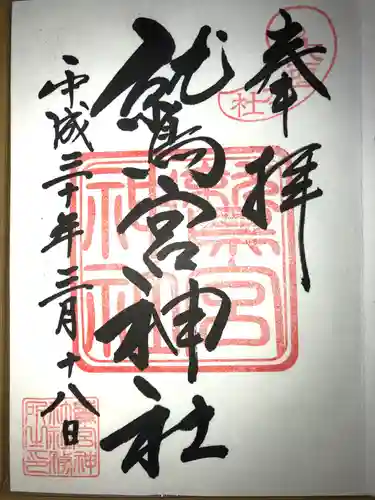 奉拝
鷲宮神社
平成三十年三月十八日